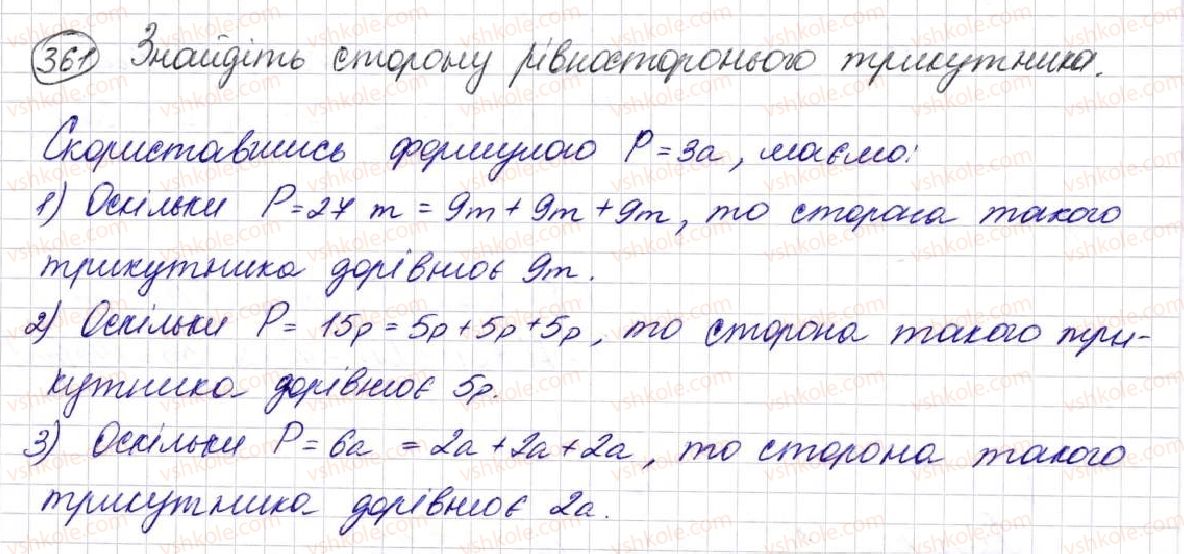 361 Знайдіть сторону рівностороннього трикутника.
Скориставшись формулою P = 3a, маємо:
1) Оскільки P = 27 m = 9m + 9m + 9m, то сторона такого
трикутника дорівнює 9m.
2) Оскільки P = 15p = 5p + 5p + 5p, то сторона такого три-
кутника дорівнює 5p.
3) Оскільки P = 6a = 2a + 2a + 2a, то сторона такого
трикутника дорівнює 2a.